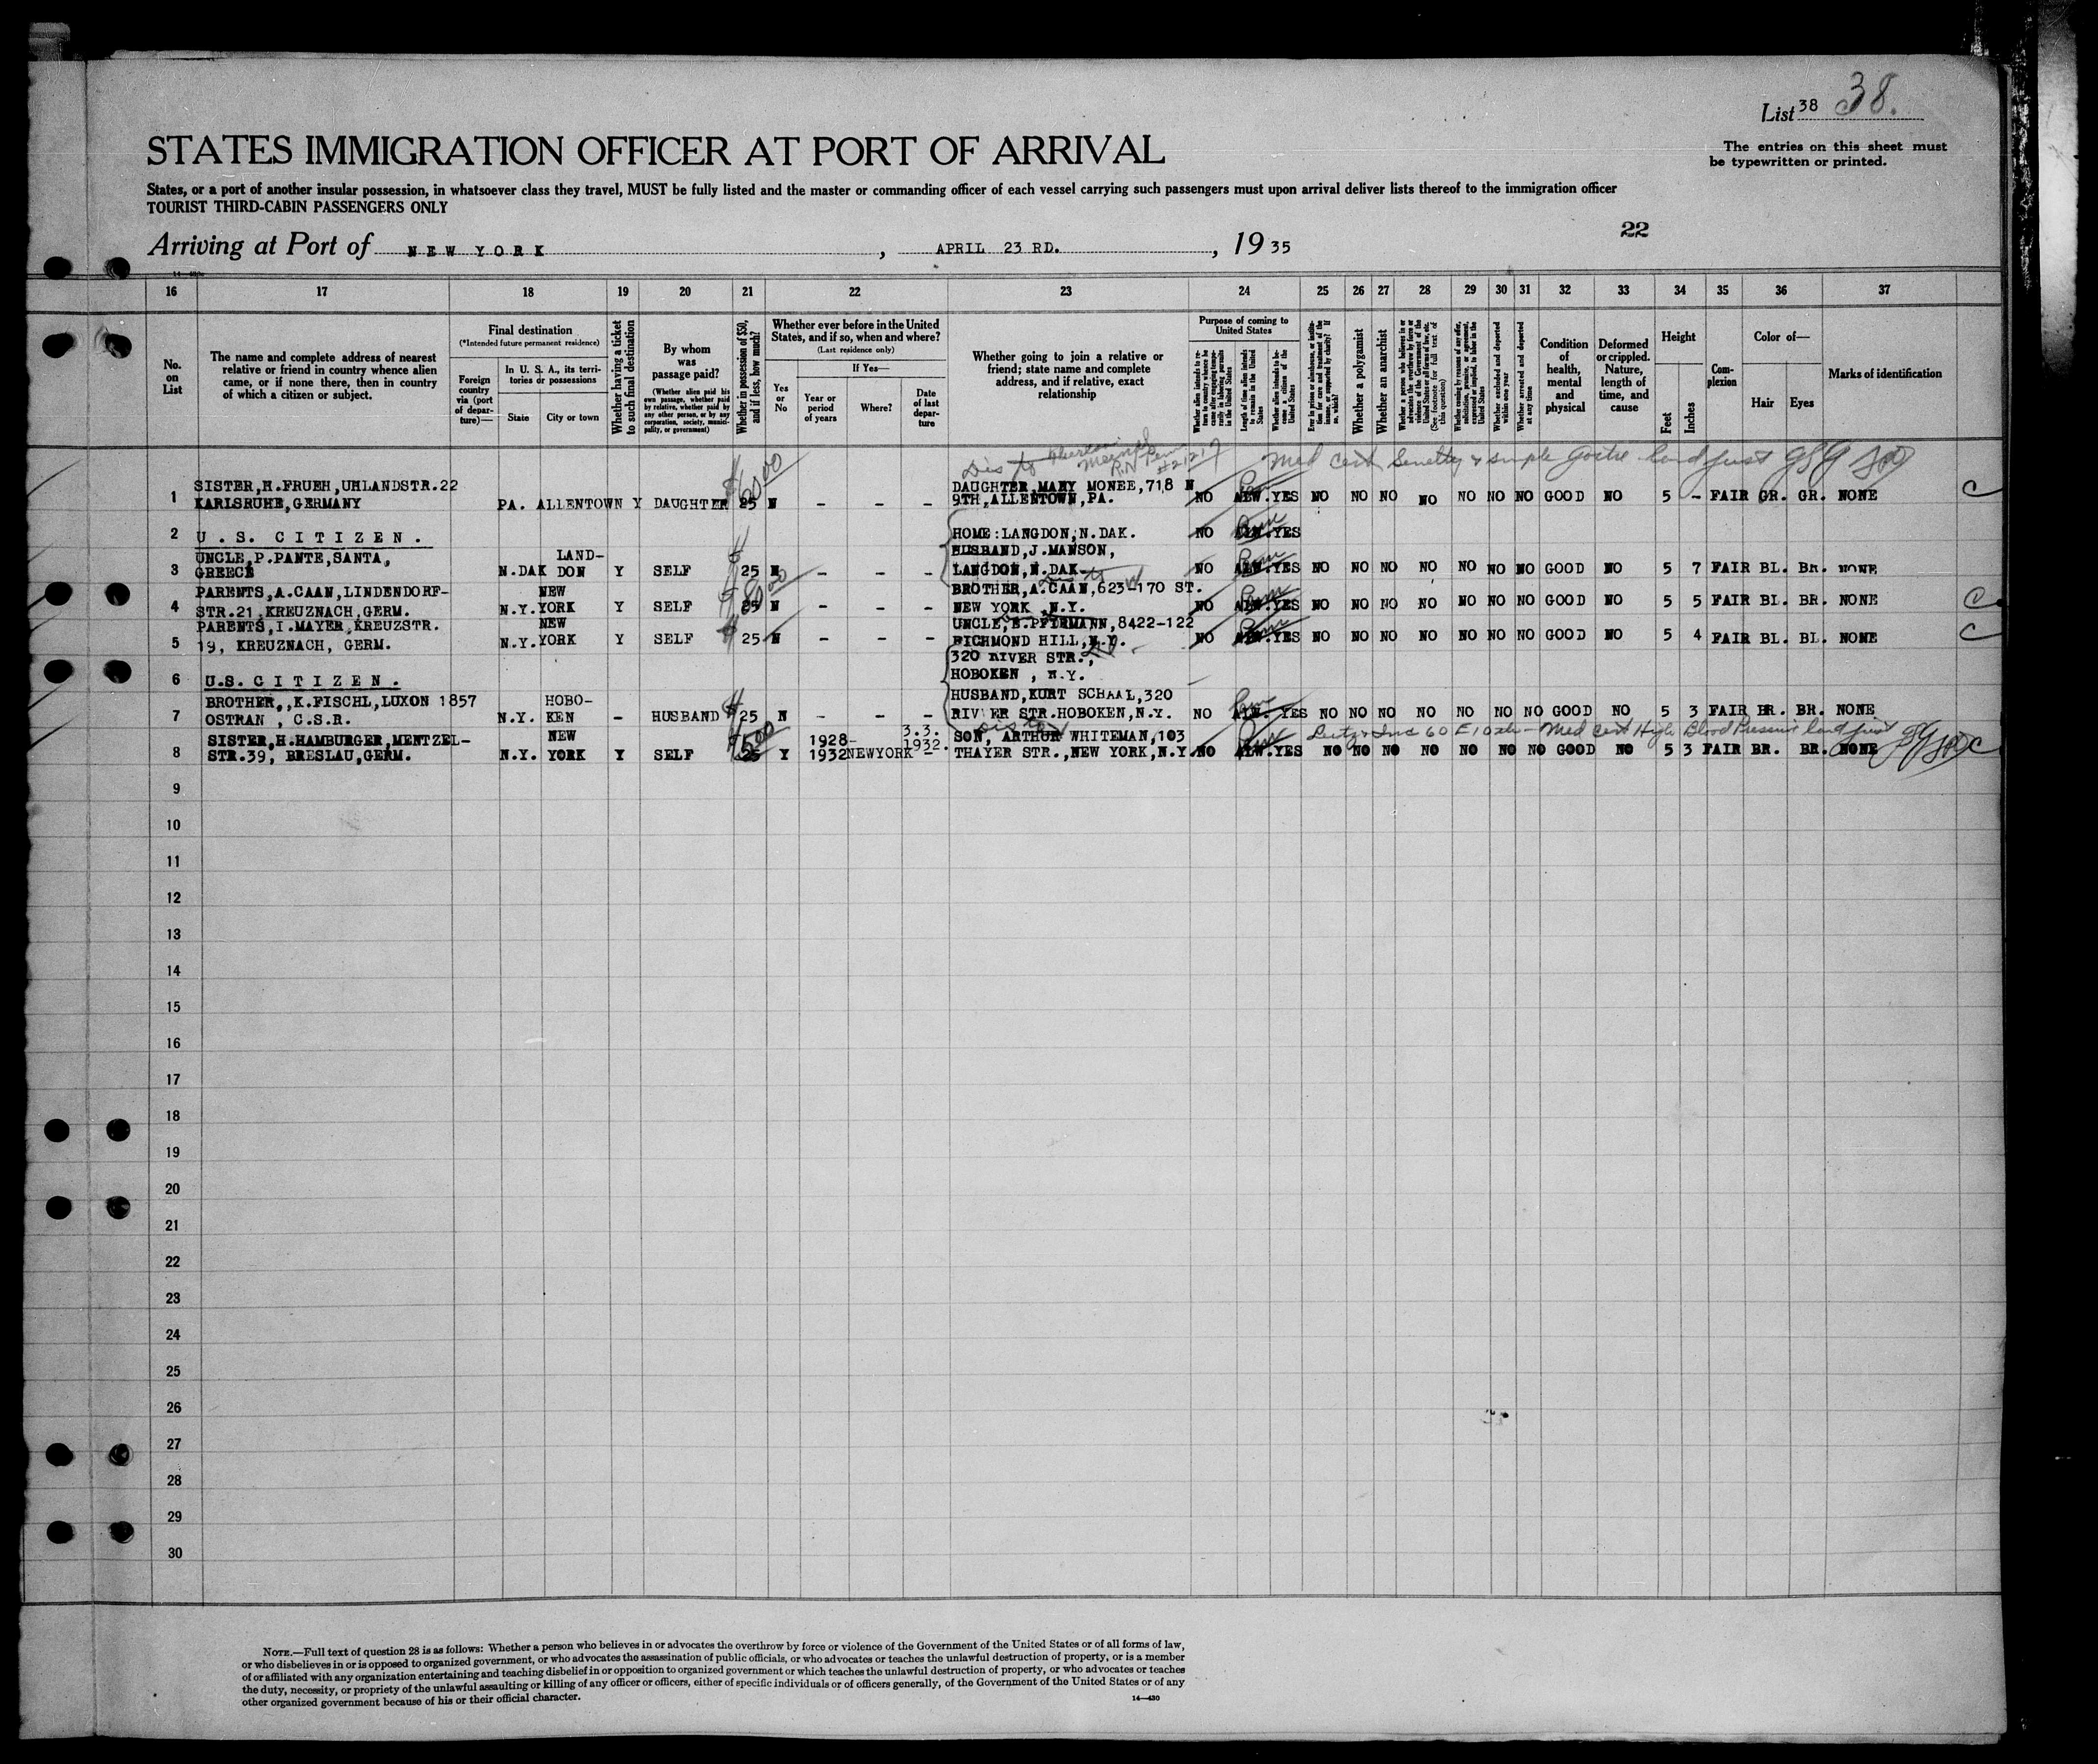 List 38 38.
STATES IMMIGRATION OFFICER AT PORT OF ARRIVAL
The entries on this sheet must
be typewritten or printed.
States, or a port of another insular possession, in whatsoever class they travel, MUST be fully listed and the master or commanding officer of each vessel carrying such passengers must upon arrival deliver lists thereof to the immigration officer
TOURIST THIRD-CABIN PASSENGERS ONLY
22
Arriving at Port of NEW YORK, APRIL 23 RD., 1935
16 17 18 19 20 21 22 23 24 25 26 27 28 29 30 31 32 33 34 35 36 37
No.
on
List
The name and complete address of nearest
relative or friend in country whence alien
came, or if none there, then in country
of which a citizen or subject.
Final destination
(*Intended future permanent residence)
Foreign
country
via (port
of depar-
ture)—
In U. S. A., its terri-
tories or possessions
State
City or town
Whether having a ticket
to such final destination
By whom
was
passage paid?
(Whether alien paid his
own passage, whether paid
by relative, whether paid by
any other person, or by any
corporation, society, munici-
pality, or government)
Whether in possession of $50,
and if less, how much?
Whether ever before in the United
States, and if so, when and where?
(Last residence only)
Yes
or
No
If Yes—
Year or
period
of years
Where?
Date
of last
depar-
ture
Whether going to join a relative or
friend; state name and complete
address, and if relative, exact
relationship
Purpose of coming to
United States
Whether alien intends to re-
turn to country whence he
came after engaging tempo-
rarily in laboring pursuits
in the United States
Length of time alien intends
to remain in the United
States
Whether alien intends to be-
come a citizen of the
United States
Ever in prison or almshouse, or institu-
tion for care and treatment of the
insane, or supported by charity? If
so, which?
Whether a polygamist
Whether an anarchist
Whether a person who believes in or
advocates the overthrow by force or
violence of the Government of the
United States or all forms of law, etc.
(See footnote for full text of
this question)
Whether coming by reason of any offer,
solicitation, promise, or agreement,
expressed or implied, to labor in the
United States
Whether excluded and deported
within one year
Whether arrested and deported
at any time
Condition
of
health,
mental
and
physical
Deformed
or crippled.
Nature,
length of
time, and
cause
Height
Feet
Inches
Com-
plexion
Color of—
Hair
Eyes
Marks of identification
Med cert Senility & simple goitre
SISTER,H.FRUEH,UHLANDSTR.22 DAUGHTER,MARY MONEE,718 N
1 KARLSRUHE,GERMANY PA. ALLENTOWN Y DAUGHTER 25 N – – – 9TH,ALLENTOWN,PA. NO ALW.YES NO NO NO NO NO NO NO GOOD NO 5 – FAIR GR. GR. NONE C
2 U.S. CITIZEN. HOME:LANGDON,N.DAK. NO ALW.YES
UNCLE,P.PANTE,SANTA, LAND- HUSBAND,J.MANSON,
3 GREECE N.DAK DON Y SELF 25 N – – – LANGDON,N.DAK NO ALW.YES NO NO NO NO NO NO NO GOOD NO 5 7 FAIR BL. BR. NONE
PARENTS,A.CAAN,LINDENDORF- NEW BROTHER,A.CAAN,623-170 ST.
4 STR.21,KREUZNACH,GERM. N.Y. YORK Y SELF 25 N – – – NEW YORK,N.Y. NO ALW.YES NO NO NO NO NO NO NO GOOD NO 5 5 FAIR BL. BR. NONE C
PARENTS,I.MAYER,KREUZSTR. NEW UNCLE,E.PFIRMANN,8422-122
5 19, KREUZNACH, GERM. N.Y. YORK Y SELF 25 N – – – RICHMOND HILL,N.Y. NO ALW.YES NO NO NO NO NO NO NO GOOD NO 5 4 FAIR BL. BL. NONE C
320 RIVER STR.,
6 U.S. CITIZEN. HOBOKEN , N.Y.
BROTHER,,K.FISCHL,LUXON 1857 HOBO- HUSBAND,KURT SCHAAL,320
7 OSTRAN , C.S.R. N.Y. KEN – HUSBAND 25 N – – – RIVER STR.HOBOKEN,N.Y. NO ALW. YES NO NO NO NO NO NO NO GOOD NO 5 3 FAIR BR. BR. NONE
Med cert High Blood Pressure
SISTER,H.HAMBURGER,MENTZEL- NEW 1928- 3.3. 1932. SON, ARTHUR WHITEMAN,103
8 STR.39, BRESLAU,GERM. N.Y. YORK Y SELF 25 Y 1932 NEWYORK – THAYER STR.,NEW YORK,N.Y. NO ALW.YES NO NO NO NO NO NO NO GOOD NO 5 3 FAIR BR. BR. NONE C
9
10
11
12
13
14
15
16
17
18
19
20
21
22
23
24
25
26
27
28
29
30
NOTE.—Full text of question 28 is as follows: Whether a person who believes in or advocates the overthrow by force or violence of the Government of the United States or of all forms of law,
or who disbelieves in or is opposed to organized government, or who advocates the assassination of public officials, or who advocates or teaches the unlawful destruction of property, or is a member
of or affiliated with any organization entertaining and teaching disbelief in or opposition to organized government or which teaches the unlawful destruction of property, or who advocates or teaches
the duty, necessity, or propriety of the unlawful assaulting or killing of any officer or officers, either of specific individuals or of officers generally, of the Government of the United States or of any
other organized government because of his or their official character.
14—430